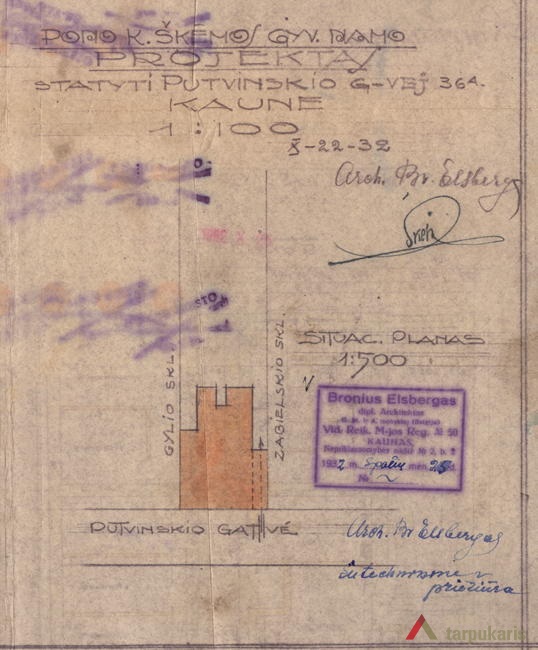 PONO K. ŠKĖMOS GYV. NAMO
PROJEKTAS
STATYTI PUTVINSKIO G-VĖJ 36A.
KAUNE
1:100
X-22-32
Arch. Br. Elsbergas
SITUAC. PLANAS
1:500
GYLIO SKL.
ZABIELSKIO SKL.
Bronius Elsbergas
dipl. Architektas
Vid. Reik. M-jos Reg. № 50
KAUNAS,
Nepriklausomybės aikštė № 2, b. 2
1932 m. Spalių mėn. 25 d.
№
PUTVINSKIO GATVĖ
Arch. Br Elsbergas
priežiūra
tarpukaris